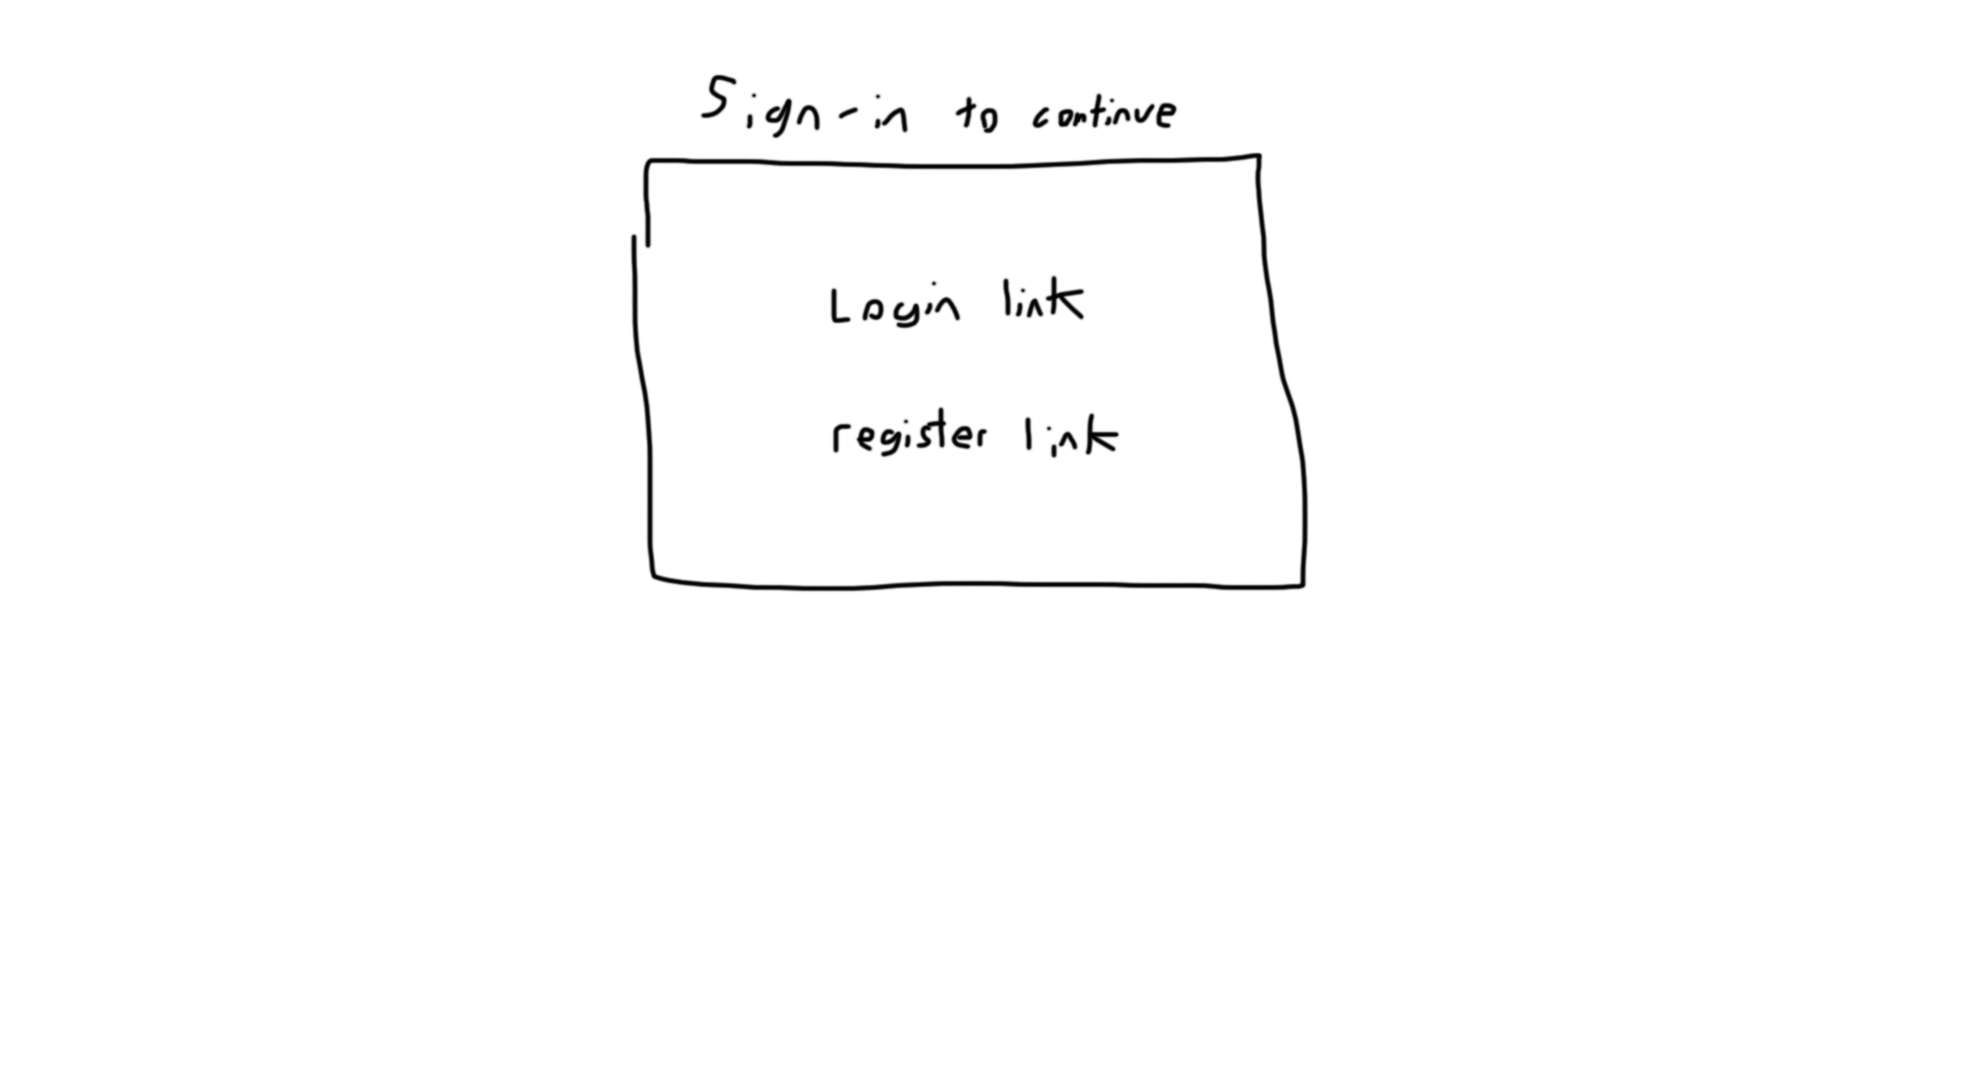 Sign-in to continue
Login link
register link